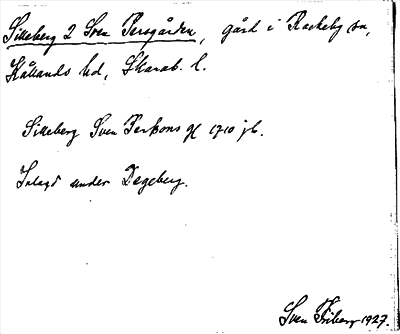 Silleberg 2 Sven Persgården, gård i Rackeby sn,
Kållands hd, Skarab. l.
Silleberg Sven Perssons gd 1710 jb.
Inlagd under Degeberg.
Sven Friberg 1927.